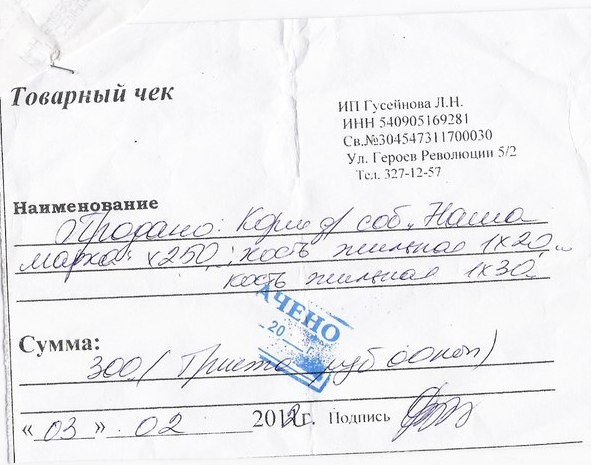 Товарный чек
ИП Гусейнова Л.Н.
ИНН 540905169281
Св.№304547311700030
Ул. Героев Революции 5/2
Тел. 327-12-57
Наименование
Продано: Корм д/ соб. „Наша
марка" х250; кость жильная 1х20
кость жильная 1х30
АЧЕНО
20 г.
Сумма:
300 (Триста руб 00коп)
«03» 02 2012г. Подпись